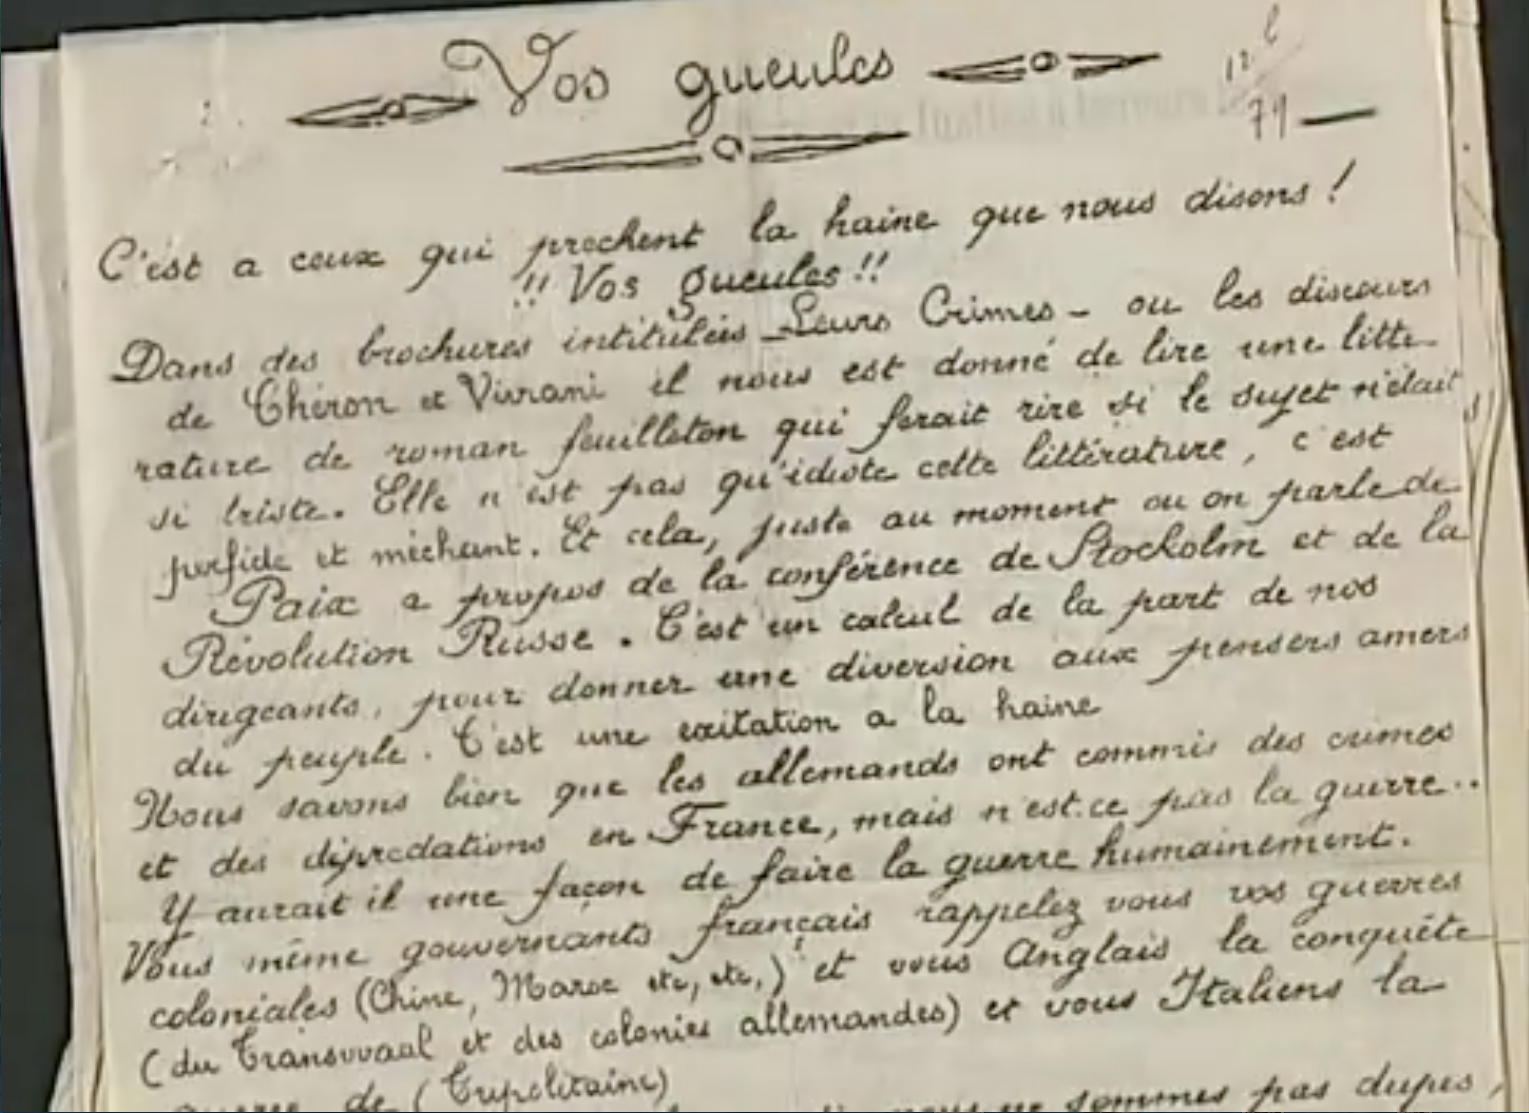 Vos gueules
12
79
C'est a ceux qui prechent la haine que nous disons !
!! Vos gueules !!
Dans des brochures intitulées - Leurs Crimes - ou les discours
de Chéron et Viviani il nous est donné de lire une litte-
rature de roman feuilleton qui ferait rire si le sujet n'était
si triste. Elle n'est pas qu'idiote cette littérature, c'est
perfide et méchant. Et cela, juste au moment ou on parle de
Paix a propos de la conférence de Stockolm et de la
Révolution Russe. C'est un calcul de la part de nos
dirigeants, pour donner une diversion aux pensers amers
du peuple. C'est une exitation a la haine
Nous savons bien que les allemands ont commis des crimes
et des dépredations en France, mais n'est-ce pas la guerre..
Y aurait il une façon de faire la guerre humainement.
Vous même gouvernants français rappelez vous vos guerres
coloniales (Chine, Maroc etc, etc,) et vous Anglais la conquête
(du Transvvaal et des colonies allemandes) et vous Italiens la
guerre de (Tripolitaine)
nous ne sommes pas dupes,